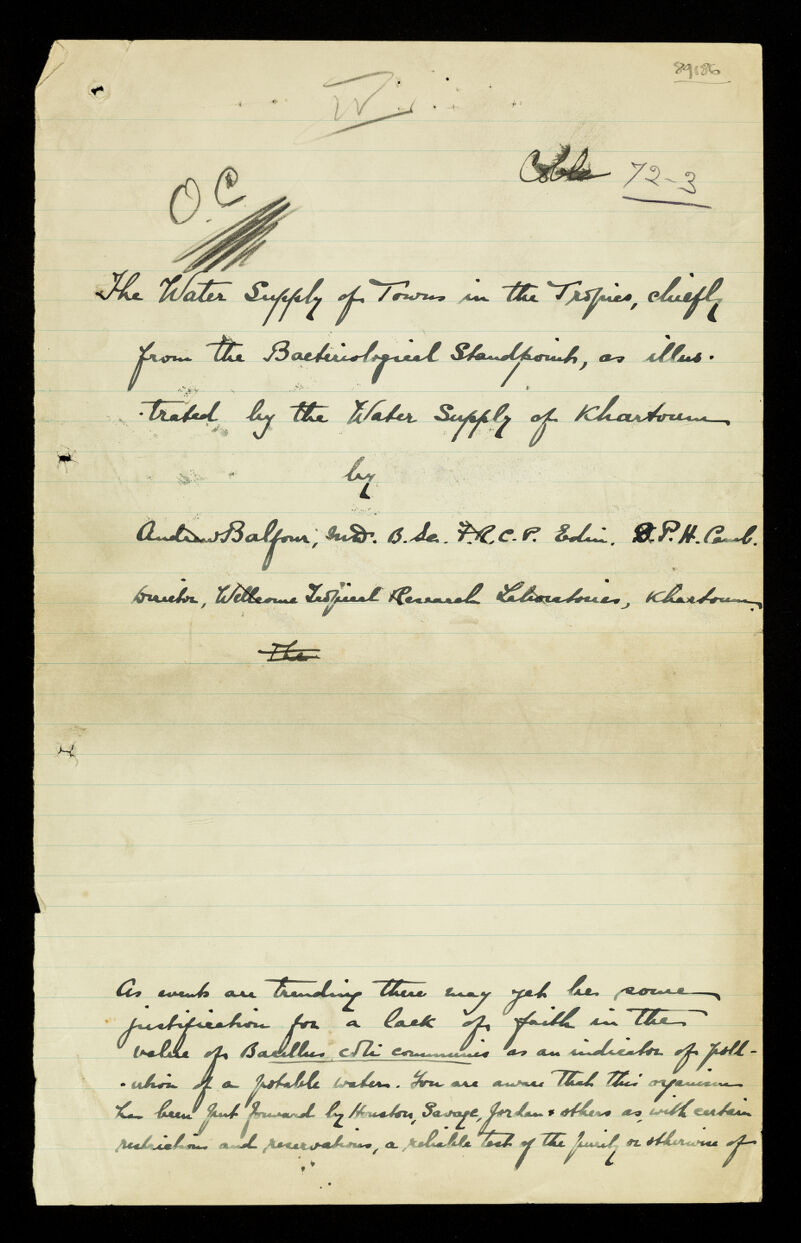 89186
W
Coli 72-3
O.C
The Water Supply of Towns in the Tropics, chiefly
from the Bacteriological Standpoint, as illus-
-trated by the Water Supply of Khartoum
by
Andrew Balfour, M.D. B.Sc. F.R.C.P. Edin. D.P.H. Camb.
Director, Wellcome Tropical Research Laboratories, Khartoum.
The
As events are trending there may yet be some
justification for a lack of faith in the
value of Bacillus coli communis as an indicator of poll-
-ution of a potable water. You are aware that this organism
has been put forward by Houston, Savage, Jordan & others as, with certain
restrictions and reservations, a reliable test of the purity or otherwise of